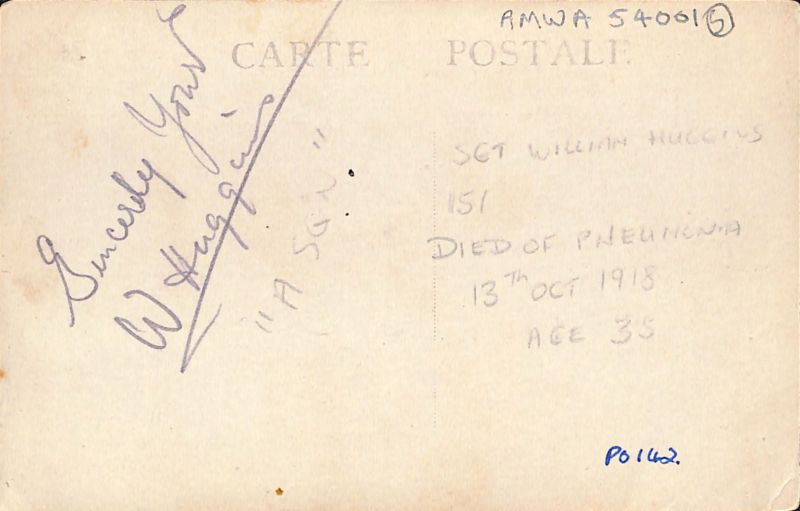 AMWA 54001 5
CARTE POSTALE
Sincerely Yours
W Huggins
SGT WILLIAM HUGGINS
151
DIED OF PNEUMONIA
13TH OCT 1918
AGE 35
PO142.